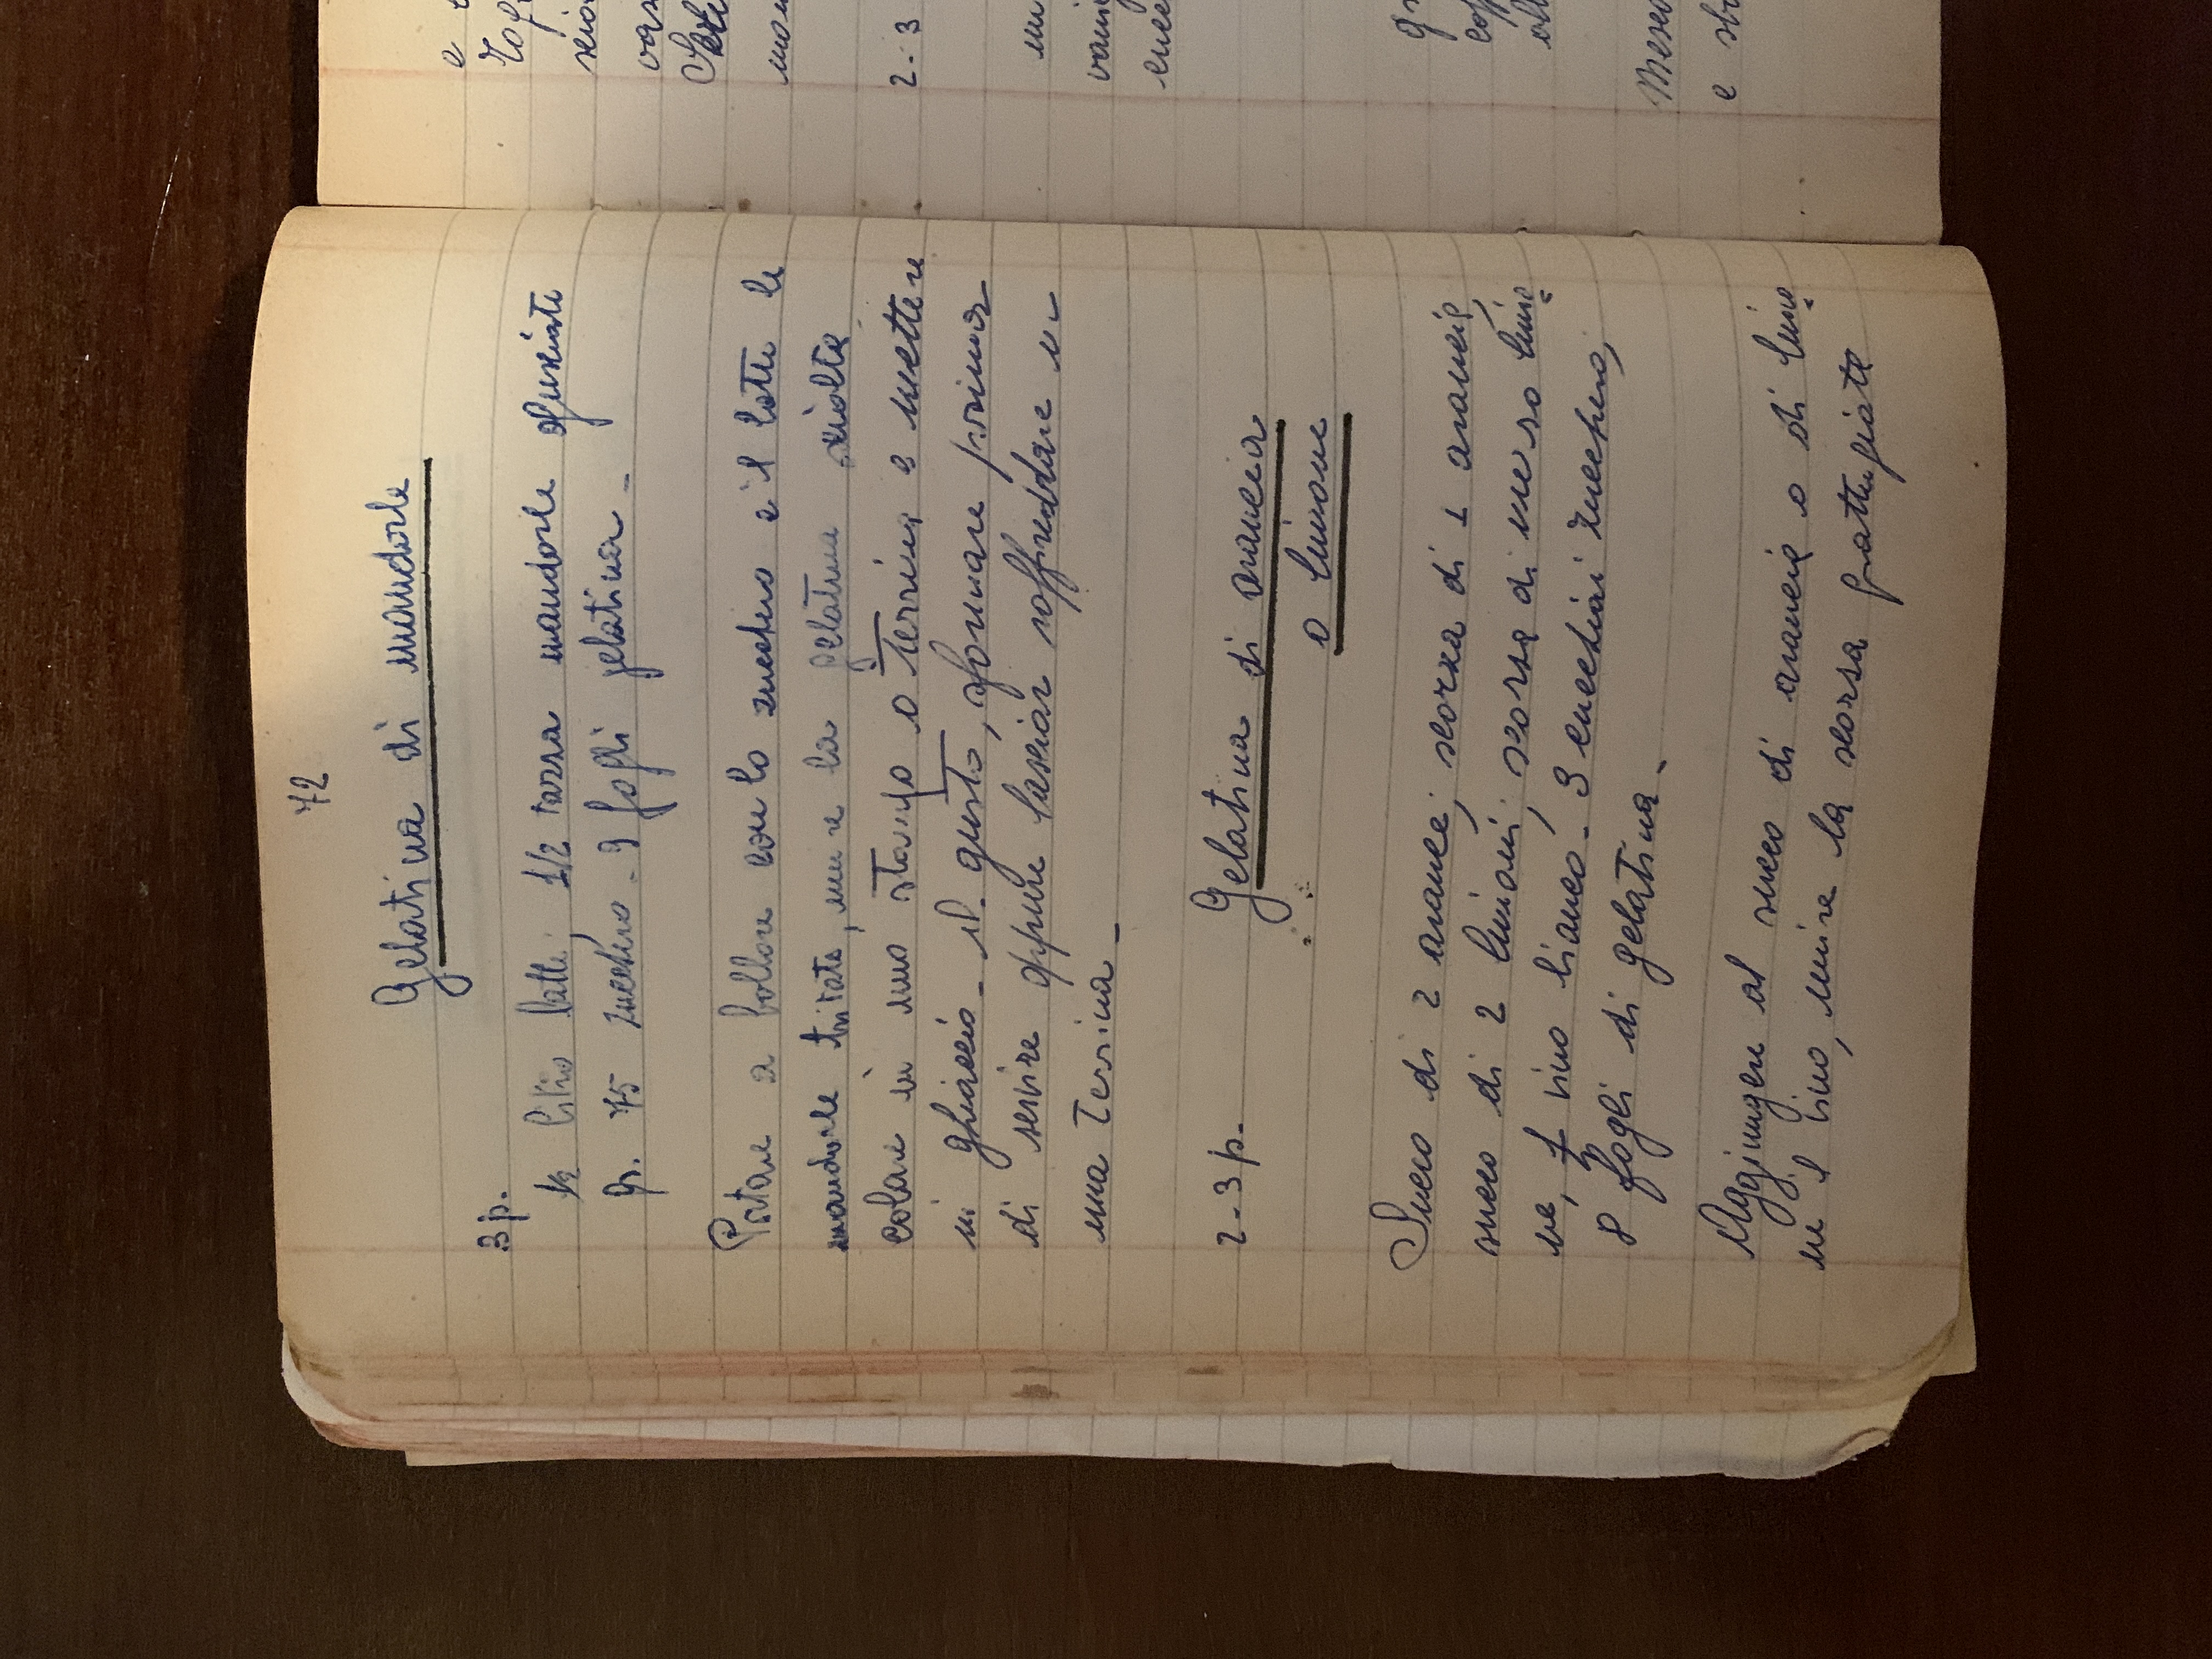 72
Gelatina di mandorle
3 p.
½ litro latte; 1/2 tazza mandorle sgusciate
gr. 75 zucchero - 9 fogli gelatina -
Portare a bollore con lo zucchero e il latte le
mandorle tritate, unire la gelatina sciolta
colare in uno stampo o terrina e mettere
in ghiaccio - gusto, sformare prima
di servire oppure lasciar raffreddare in
una terrina -
2-3 p. Gelatina di arancia
o limone
Succo di 2 arance; scorza di 1 arancia,
succo di 2 limoni; scorza di mezzo limo
ne, vino bianco - 3 cucchiai zucchero;
8 fogli di gelatina -
Aggiungere al succo di arancia o di limo
ne il vino, unire la scorza grattugiate
2-3